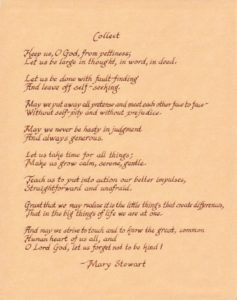 Collect
Keep us, O God, from pettiness;
Let us be large in thought, in word, in deed.
Let us be done with fault-finding
And leave off self-seeking.
May we put away all pretense and meet each other face to face-
Without self-pity and without prejudice.
May we never be hasty in judgment
And always generous.
Let us take time for all things;
Make us grow calm, serene, gentle.
Teach us to put into action our better impulses,
Straightforward and unafraid.
Grant that we may realize it is the little things that create differences,
That in the big things of life we are at one.
And may we strive to touch and to know the great, common
Human heart of us all, and
O Lord God, let us forget not to be kind!
-Mary Stewart